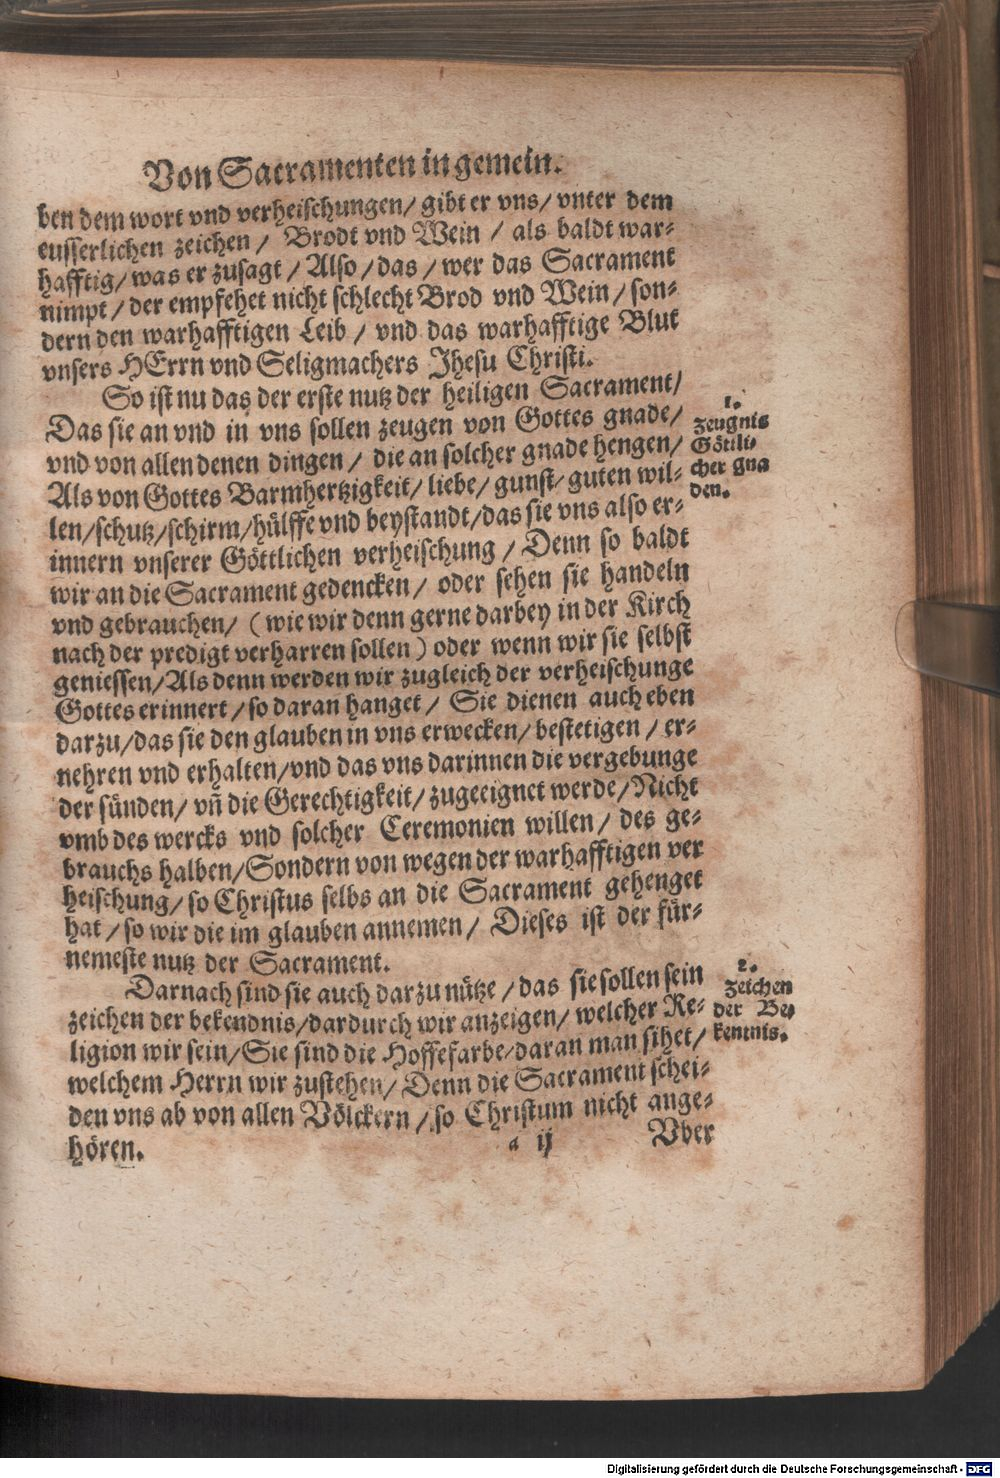 Von Sacramenten in gemein.
ben dem wort vnd verheischungen/ gibt er vns/ vnter dem
eusserlichen zeichen / Brodt vnd Wein / als baldt war-
hafftig/ was er zusagt / Also / das / wer das Sacrament
nimpt / der empfehet nicht schlecht Brod vnd Wein / son-
dern den warhafftigen Leib / vnd das warhafftige Blut
vnsers HErrn vnd Seligmachers Jhesu Christi.
So ist nu das der erste nutz der heiligen Sacrament/
Das sie an vnd in vns sollen zeugen von Gottes gnade/
vnd von allen denen dingen / die an solcher gnade hengen/
Als von Gottes Barmhertzigkeit/ liebe/ gunst/ guten wil-
len/schutz/schirm/hülffe vnd beystandt/das sie vns also er-
innern vnserer Göttlichen verheischung / Denn so baldt
wir an die Sacrament gedencken / oder sehen sie handeln
vnd gebrauchen/ (wie wir denn gerne darbey in der Kirch
nach der predigt verharren sollen) oder wenn wir sie selbst
geniessen/Als denn werden wir zugleich der verheischunge
Gottes erinnert / so daran hanget / Sie dienen auch eben
darzu/das sie den glauben in vns erwecken/ bestetigen / er-
nehren vnd erhalten/vnd das vns darinnen die vergebunge
der sünden/ vñ die Gerechtigkeit/ zugeeignet werde/Nicht
vmb des wercks vnd solcher Ceremonien willen/ des ge-
brauchs halben/Sondern von wegen der warhafftigen ver
heischung/ so Christus selbs an die Sacrament gehenget
hat / so wir die im glauben annemen / Dieses ist der für-
nemeste nutz der Sacrament.
1.
Zeugnis
Göttli-
cher gna
den.
Darnach sind sie auch darzu nütze / das sie sollen sein
zeichen der bekendnis/dardurch wir anzeigen/ welcher Re-
ligion wir sein/Sie sind die Hoffefarbe/daran man sihet/
welchem Herrn wir zustehen/ Denn die Sacrament schei-
den vns ab von allen Völckern / so Christum nicht ange-
hören.
2.
Zeichen
der Be-
kentnis.
a ij
Vber
Digitalisierung gefördert durch die Deutsche Forschungsgemeinschaft - DFG